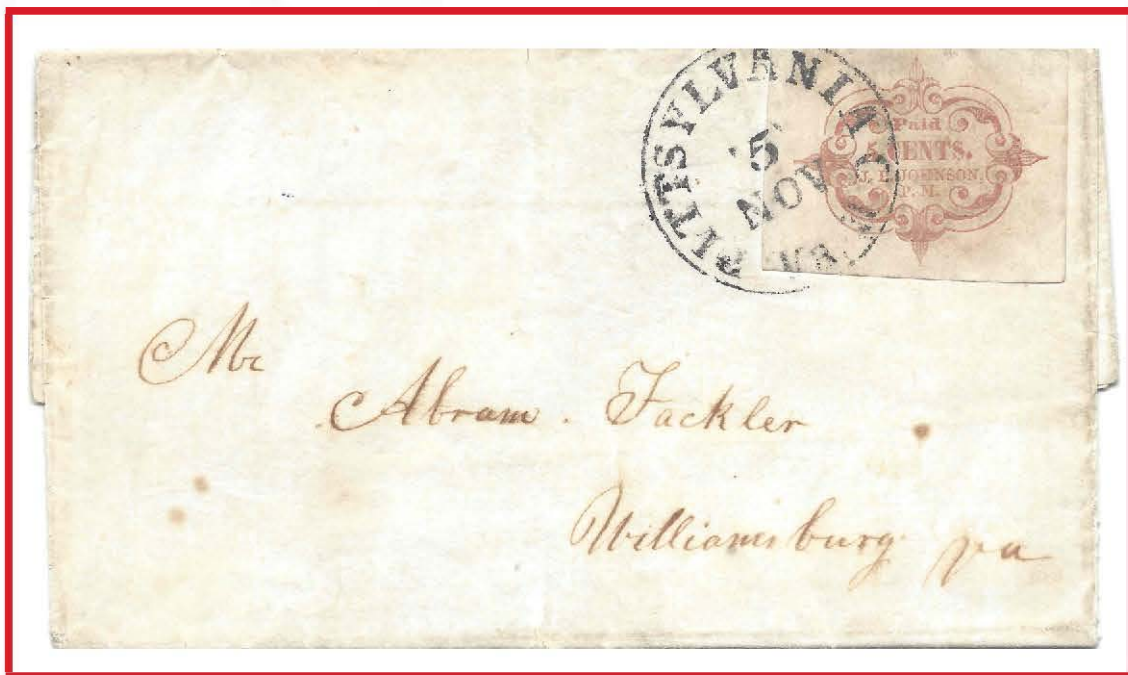 PITTSYLVANIA C.H. Va.
5
NOV
Paid
5 CENTS.
J. P. JOHNSON.
P. M.
Mr
Abram . Fackler
Williamsburg va